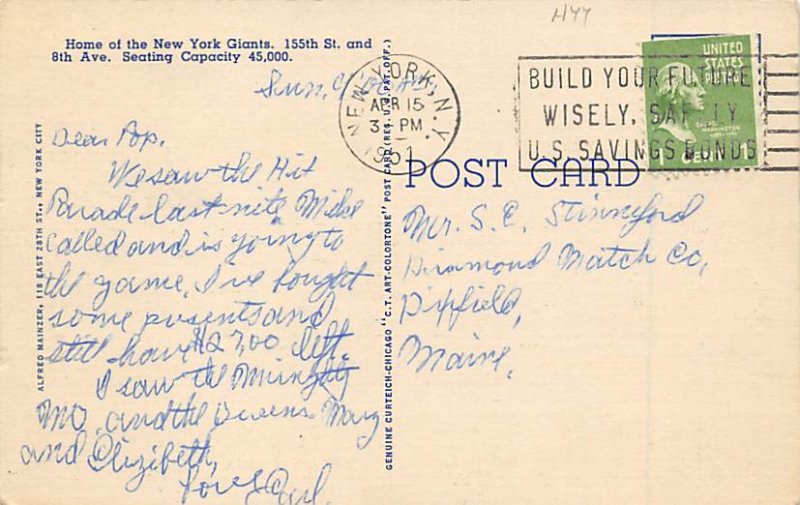 H44
Home of the New York Giants. 155th St. and
8th Ave. Seating Capacity 45,000.
NEW YORK, N.Y.
APR 15
3 - PM
1951
BUILD YOUR FUTURE
WISELY, SAFELY
U.S. SAVINGS BONDS
UNITED
STATES
POSTAGE
WASHINGTON
1
POST CARD
Sun,
Dear Pop,
We saw the Hit
Parade last nite, Mike
called and is going to
the game, I've bought
some presents and
still have $27.00 left.
I saw the Minghty
MO. and the Queens Mary
and Elizibeth,
Love
Mr. S. E. Stinneford
Diramond Match Co,
Dixfield,
Maine,
ALFRED MAINZER, 118 EAST 28TH ST., NEW YORK CITY
GENUINE CURTEICH-CHICAGO "C.T. ART-COLORTONE" POST CARD (REG. U.S. PAT. OFF.)